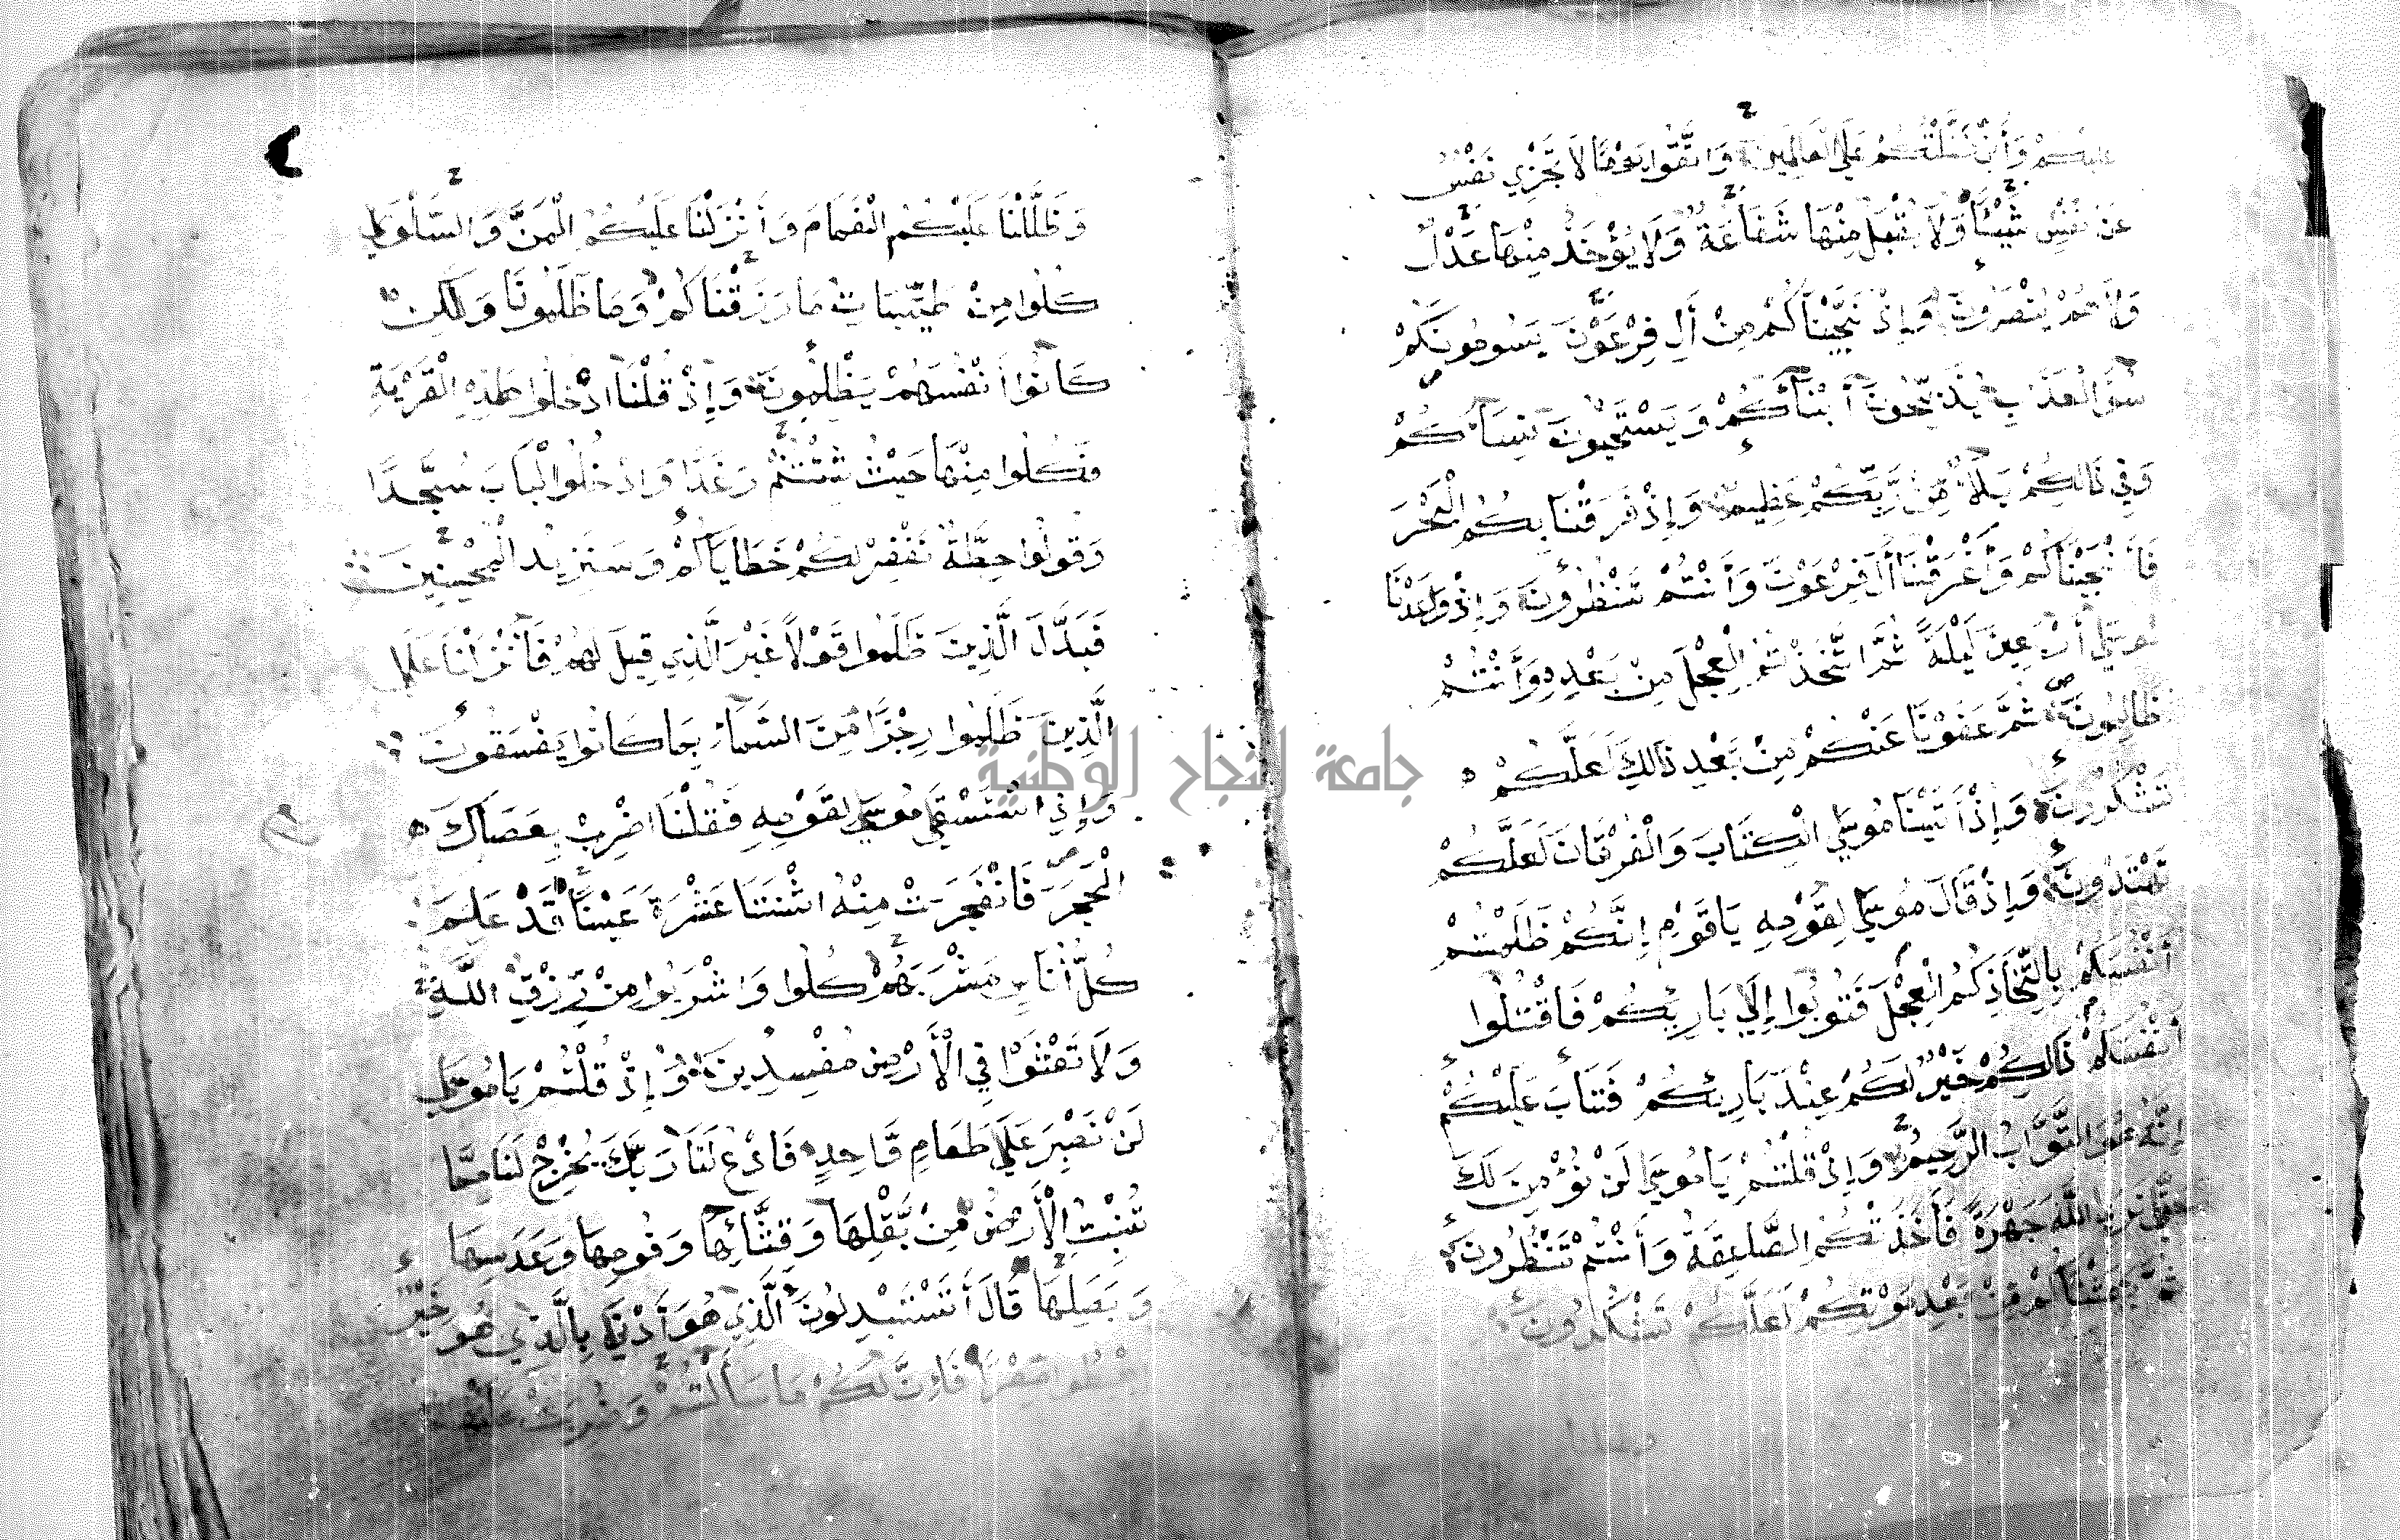 عَلَيْكُمْ وَأَنِّي فَضَّلْتُكُمْ عَلَي الْعَالَمِينَ وَاتَّقُوا يَوْمًا لَا تَجْزِي نَفْسٌ
عَنْ نَفْسٍ شَيْئًا وَلَا يُقْبَلُ مِنْهَا شَفَاعَةٌ وَلَا يُؤْخَذُ مِنْهَا عَدْلٌ
وَلَا هُمْ يُنْصَرُونَ وَإِذْ نَجَّيْنَاكُمْ مِنْ أَلِ فِرْعَوْنَ يَسُومُونَكُمْ
سُوَٓءَ الْعَذَابِ يُذَبِّحُونَ أَبْنَآءَكُمْ وَيَسْتَحْيُونَ نِسَآءَكُمْ
وَفِي ذَالِكُمْ بَلَآءٌ مِّنْ رَّبِّكُمْ عَظِيمٌ وَإِذْ فَرَقْنَا بِكُمُ الْبَحْرَ
فَأَنْجَيْنَاكُمْ وَأَغْرَقْنَا أَلَ فِرْعَوْنَ وَأَنْتُمْ تَنْظُرُونَ وَإِذْ وَاعَدْنَا
مُوسَي أَرْبَعِينَ لَيْلَةً ثُمَّ اتَّخَذْتُمُ الْعِجْلَ مِنْ بَعْدِهِ وَأَنْتُمْ
ظَالِمُونَ ثُمَّ عَفَوْنَا عَنْكُمْ مِنْ بَعْدِ ذَالِكَ لَعَلَّكُمْ
تَشْكُرُونَ وَإِذْ أَتَيْنَا مُوسَي الْكِتَابَ وَالْفُرْقَانَ لَعَلَّكُمْ
تَهْتَدُونَ وَإِذْ قَالَ مُوسَي لِقَوْمِهِ يَاقَوْمِ إِنَّكُمْ ظَلَمْتُمْ
أَنْفُسَكُمْ بِاتِّخَاذِكُمُ الْعِجْلَ فَتُوبُوا إِلَي بَارِئِكُمْ فَاقْتُلُوا
أَنْفُسَكُمْ ذَالِكُمْ خَيْرٌ لَكُمْ عِنْدَ بَارِئِكُمْ فَتَابَ عَلَيْكُمْ
إِنَّهُ هُوَ التَّوَّابُ الرَّحِيمُ وَإِذْ قُلْتُمْ يَامُوسَي لَنْ نُؤْمِنَ لَكَ
حَتَّي نَرَي اللَّهَ جَهْرَةً فَأَخَذَتْكُمُ الصَّاعِقَةُ وَأَنْتُمْ تَنْظُرُونَ
ثُمَّ بَعَثْنَاكُمْ مِنْ بَعْدِ مَوْتِكُمْ لَعَلَّكُمْ تَشْكُرُونَ
وَظَلَّلْنَا عَلَيْكُمُ الْغَمَامَ وَأَنْزَلْنَا عَلَيْكُمُ الْمَنَّ وَالسَّلْوَي
كُلُوا مِنْ طَيِّبَاتِ مَا رَزَقْنَاكُمْ وَمَا ظَلَمُونَا وَلَكِنْ
كَانُوا أَنْفُسَهُمْ يَظْلِمُونَ وَإِذْ قُلْنَا ادْخُلُوا هَذِهِ الْقَرْيَةِ
فَكُلُوا مِنْهَا حَيْثُ شِئْتُمْ رَغَدًا وَادْخُلُوا الْبَابَ سُجَّدًا
وَقُولُوا حِطَّةٌ نَغْفِرْ لَكُمْ خَطَايَاكُمْ وَسَنَزِيدُ الْمُحْسِنِينَ
فَبَدَّلَ الَّذِينَ ظَلَمُوا قَوْلًا غَيْرَ الَّذِي قِيلَ لَهُمْ فَأَنْزَلْنَا عَلَي
الَّذِينَ ظَلَمُوا رِجْزًا مِّنَ السَّمَآءِ بِمَا كَانُوا يَفْسُقُونَ
جامعة النجاح الوطنية
وَإِذِ اسْتَسْقَي مُوسَي لِقَوْمِهِ فَقُلْنَا اضْرِبْ بِعَصَاكَ
الْحَجَرَ فَانْفَجَرَتْ مِنْهُ اثْنَتَا عَشْرَةَ عَيْنًا قَدْ عَلِمَ
كُلُّ أُنَاسٍ مَشْرَبَهُمْ كُلُوا وَاشْرَبُوا مِنْ رِّزْقِ اللَّهِ
وَلَا تَعْثَوْا فِي الْأَرْضِ مُفْسِدِينَ وَإِذْ قُلْتُمْ يَامُوسَي
لَنْ نَصْبِرَ عَلَي طَعَامٍ وَّاحِدٍ فَادْعُ لَنَا رَبَّكَ يُخْرِجْ لَنَا مِمَّا
تُنْبِتُ الْأَرْضُ مِنْ بَقْلِهَا وَقِثَّآئِهَا وَفُومِهَا وَعَدَسِهَا
وَبَصَلِهَا قَالَ أَتَسْتَبْدِلُونَ الَّذِي هُوَ أَدْنَي بِالَّذِي هُوَ خَيْرٌ
مِصْرًا فَإِنَّ لَكُمْ مَا سَأَلْتُمْ وَضُرِبَتْ عَلَيْهِمُ